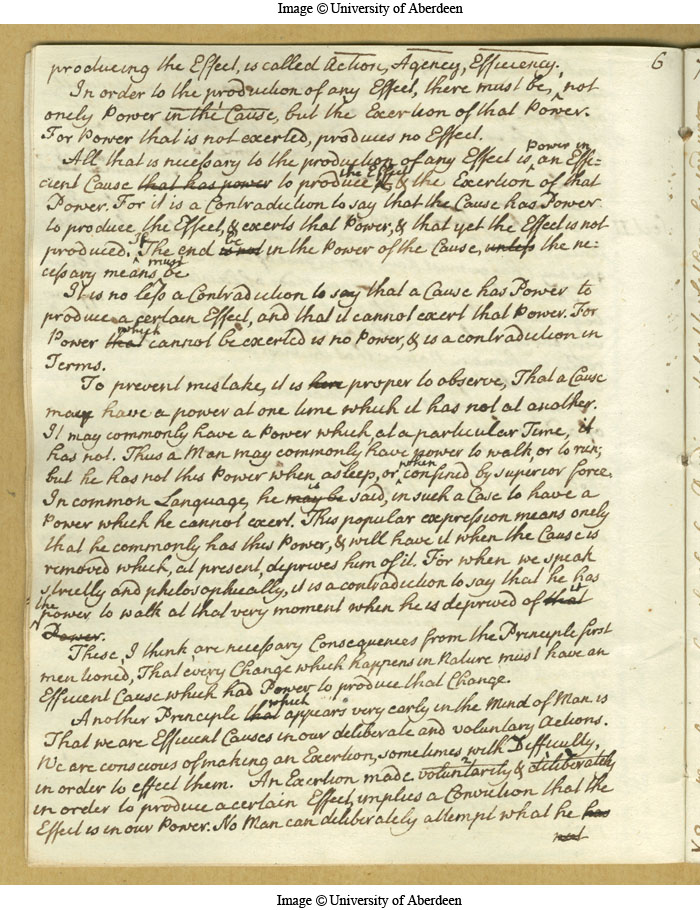 Image © University of Aberdeen
6
producing the Effect, is called Action, Agency, Efficiency.
In order to the production of any Effect, there must be, not
onely Power in the Cause, but the Exertion of that Power.
For Power that is not exerted, produces no Effect.
All that is necessary to the production of any Effect is Power in an Effi-
cient Cause that has power to produce the Effect & the Exertion of that
Power. For it is a Contradiction to say that the Cause has Power
to produce the Effect, & exerts that Power, & that yet the Effect is not
produced. If The end is not be in the Power of the Cause, unless the ne-
cessary means must be
It is no less a Contradiction to say that a Cause has Power to
produce a certain Effect, and that it cannot exert that Power. For
Power that which cannot be exerted is no Power, & is a contradiction in
Terms.
To prevent mistake, it is here proper to observe, That a Cause
may have a power at one time which it has not at another.
It may commonly have a Power which, at a particular Time, it
has not. Thus a Man may commonly have power to walk or to run;
but he has not this Power when asleep, or when confined by superior force.
In common Language, he may be is said, in such a Case to have a
Power which he cannot exert. This popular expression means onely
that he commonly has this Power, & will have it when the Cause is
removed which, at present, deprives him of it. For when we speak
strictly and philosophically, it is a contradiction to say that he has
the power to walk at that very moment when he is deprived of that it
Power.
These, I think are necessary Consequences from the Principle first
mentioned, That every Change which happens in Nature must have an
Efficient Cause which had Power to produce that Change.
Another Principle that which appears very early in the Mind of Man is
That we are Efficient Causes in our deliberate and voluntary Actions.
We are conscious of making an Exertion, sometimes with Difficulty,
in order to effect them. An Exertion made voluntarity & deliberately
in order to produce a certain Effect, implies a Conviction that the
Effect is in our Power. No Man can deliberately attempt what he has
not
Image © University of Aberdeen